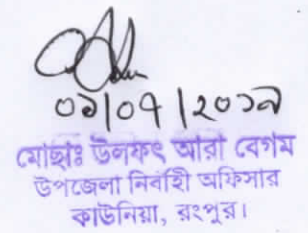 ০১/০৭/২০১৯
মোছাঃ উলফৎ আরা বেগম
উপজেলা নির্বাহী অফিসার
কাউনিয়া, রংপুর।